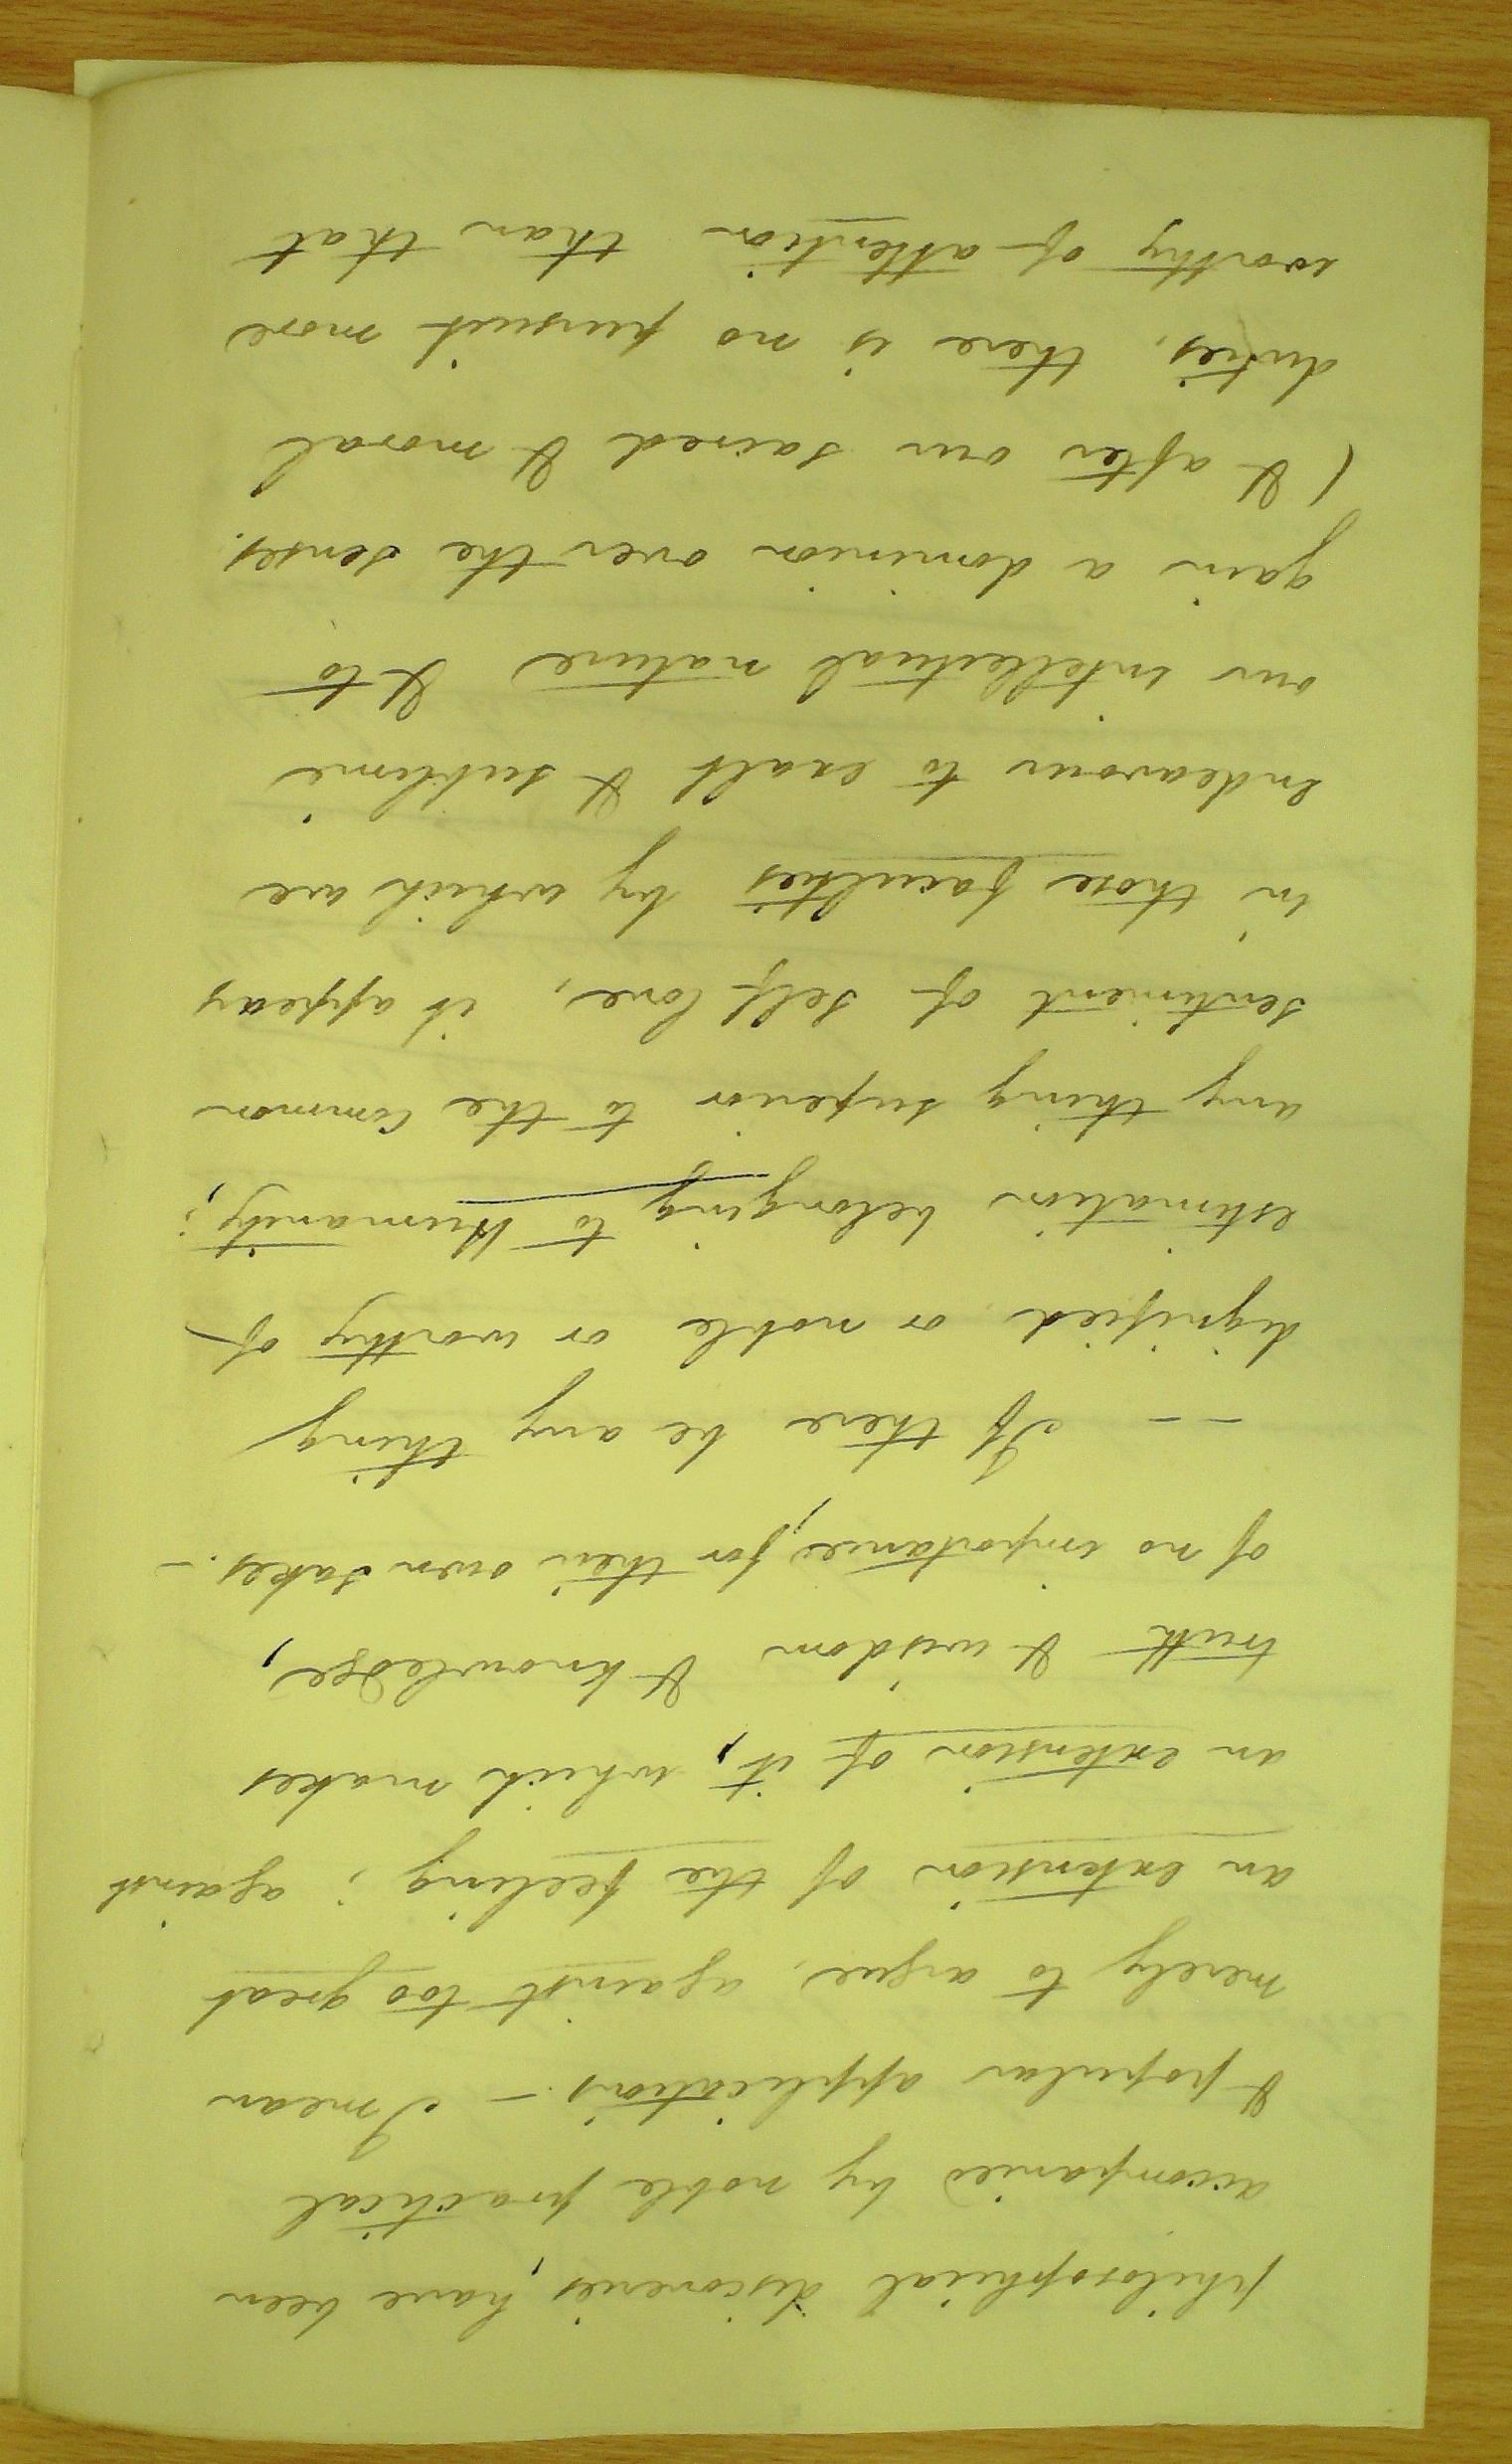 philosophical discoveries, have been
accompanied by noble practical
& popular applications. – I mean
merely to argue, against too great
an extension of the feeling; against
an extension of it, which makes
truth & wisdom & knowledge,
of no importance, for their own sakes. –
– – If there be any thing
dignified or noble or worthy of
estimation belonging to Humanity;
any thing superior to the common
sentiment of self love, it appears
in those faculties by which we
endeavour to exalt & sublime
our intellectual nature & to
gain a dominion over the senses.
( & after our sacred & moral
duties, there is no pursuit more
worthy of attention than that